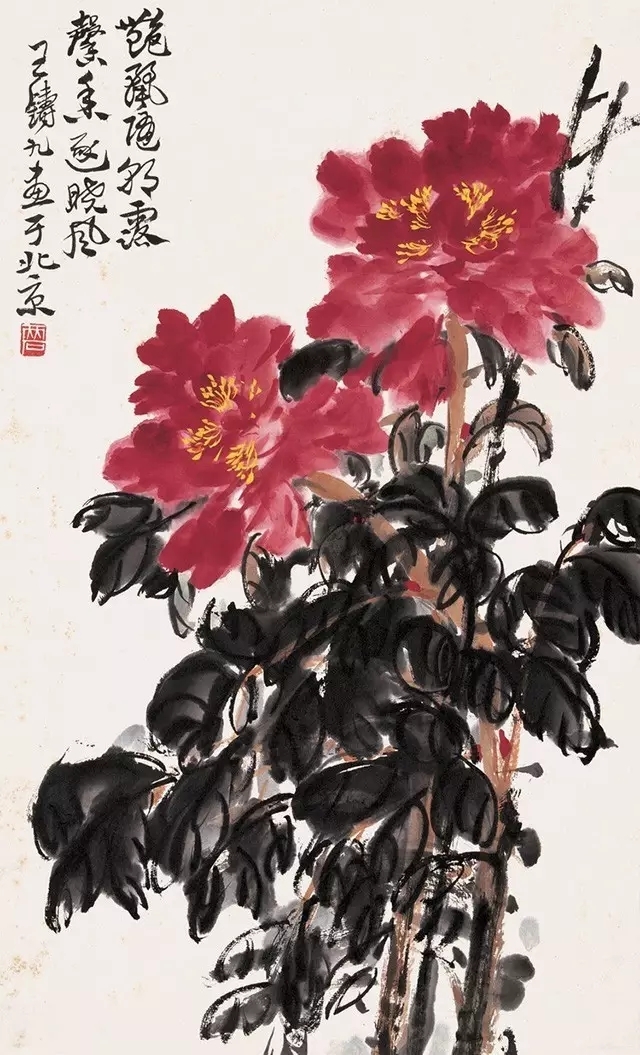 艷麗随朝露
馨香逐晓风
王鑄九画于北京